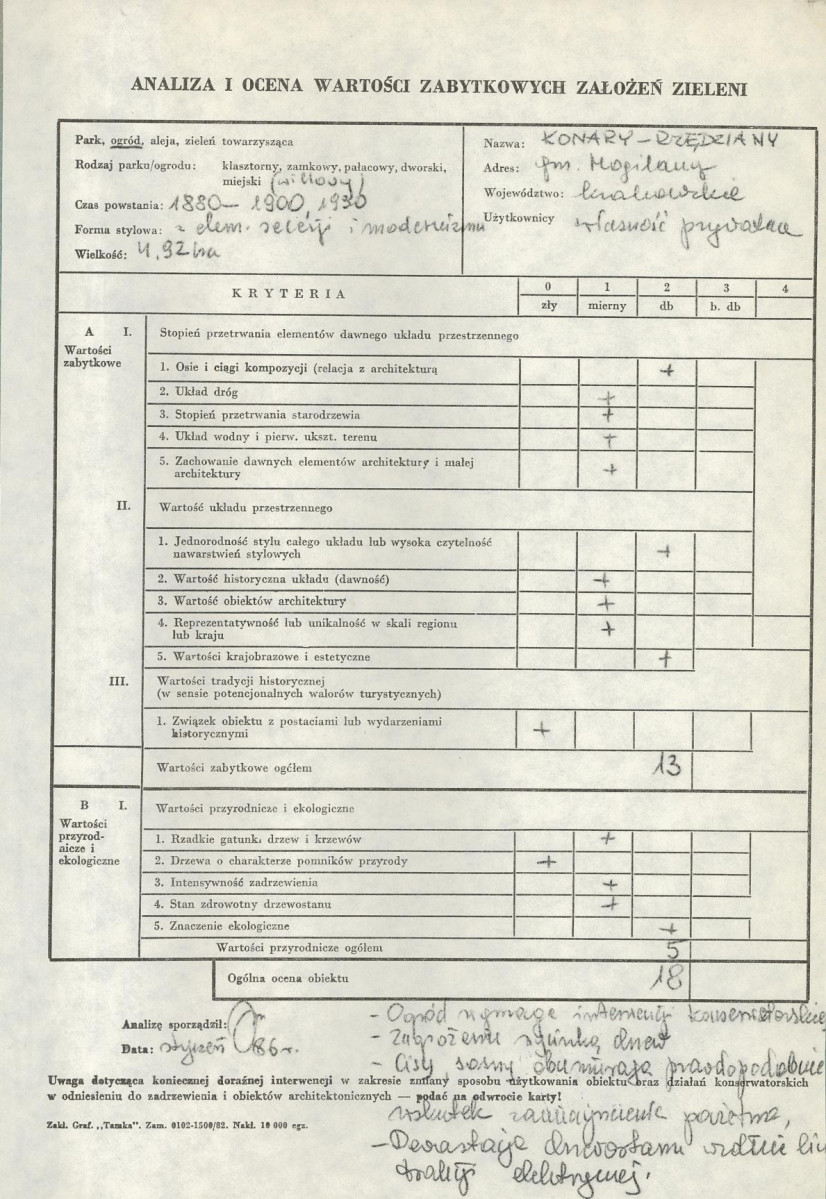 ANALIZA I OCENA WARTOŚCI ZABYTKOWYCH ZAŁOŻEŃ ZIELENI
Park, ogród, aleja, zieleń towarzysząca
Rodzaj parku/ogrodu: klasztorny, zamkowy, pałacowy, dworski,
miejski (willowy)
Czas powstania: 1880 – 1900, 1930
Forma stylowa: z elem. secesji i modernizmu
Wielkość: 4,92 ha
Nazwa: KONARY – RZĘDZIANY
Adres: gm. Mogilany
Województwo: krakowskie
Użytkownicy własność prywatna
KRYTERIA 0 1 2 3 4
zły mierny db b. db
A I. Stopień przetrwania elementów dawnego układu przestrzennego
Wartości
zabytkowe
1. Osie i ciągi kompozycji (relacja z architekturą +
2. Układ dróg +
3. Stopień przetrwania starodrzewia +
4. Układ wodny i pierw. ukszt. terenu +
5. Zachowanie dawnych elementów architektury i małej
architektury +
II. Wartość układu przestrzennego
1. Jednorodność stylu całego układu lub wysoka czytelność
nawarstwień stylowych +
2. Wartość historyczna układu (dawność) +
3. Wartość obiektów architektury +
4. Reprezentatywność lub unikalność w skali regionu
lub kraju +
5. Wartości krajobrazowe i estetyczne +
III. Wartości tradycji historycznej
(w sensie potencjonalnych walorów turystycznych)
1. Związek obiektu z postaciami lub wydarzeniami
historycznymi +
Wartości zabytkowe ogółem 13
B I. Wartości przyrodnicze i ekologiczne
Wartości
przyrod-
nicze i
ekologiczne
1. Rzadkie gatunki drzew i krzewów +
2. Drzewa o charakterze pomników przyrody +
3. Intensywność zadrzewienia +
4. Stan zdrowotny drzewostanu +
5. Znaczenie ekologiczne +
Wartości przyrodnicze ogółem 5
Ogólna ocena obiektu 18
Analizę sporządził:
Data: styczeń 86 r.
– Ogród wymaga interwencji konserwatorskiej
– Zagrożenie drzew
– Cisy, sosny obumierają prawdopodobnie
Uwaga dotycząca koniecznej doraźnej interwencji w zakresie zmiany sposobu użytkowania obiektu oraz działań konserwatorskich
w odniesieniu do zadrzewienia i obiektów architektonicznych — podać na odwrocie karty!
wskutek zanieczyszczenia powietrza,
Zakł. Graf. „Tamka”. Zam. 0102-1500/82. Nakł. 10 000 egz.
– Dewastacja drzewostanu wzdłuż
trakcji elektrycznej.